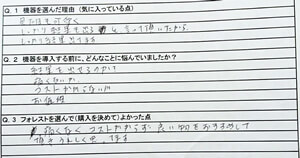 Q. 1 機器を選んだ理由（気に入っている点）
見た目も可愛く
しっかり結果も出る と言って頂いたから
しっかり結果出てます
Q. 2 機器を導入する前に、どんなことに悩んでいましたか？
結果を出せるのか？
痛くないか
コストがかからないか
お値段
Q. 3 フォレストを選んで（購入を決めて）よかった点
痛くなく コストかからず 良い物をおすすめして
頂きうれしく思ってます